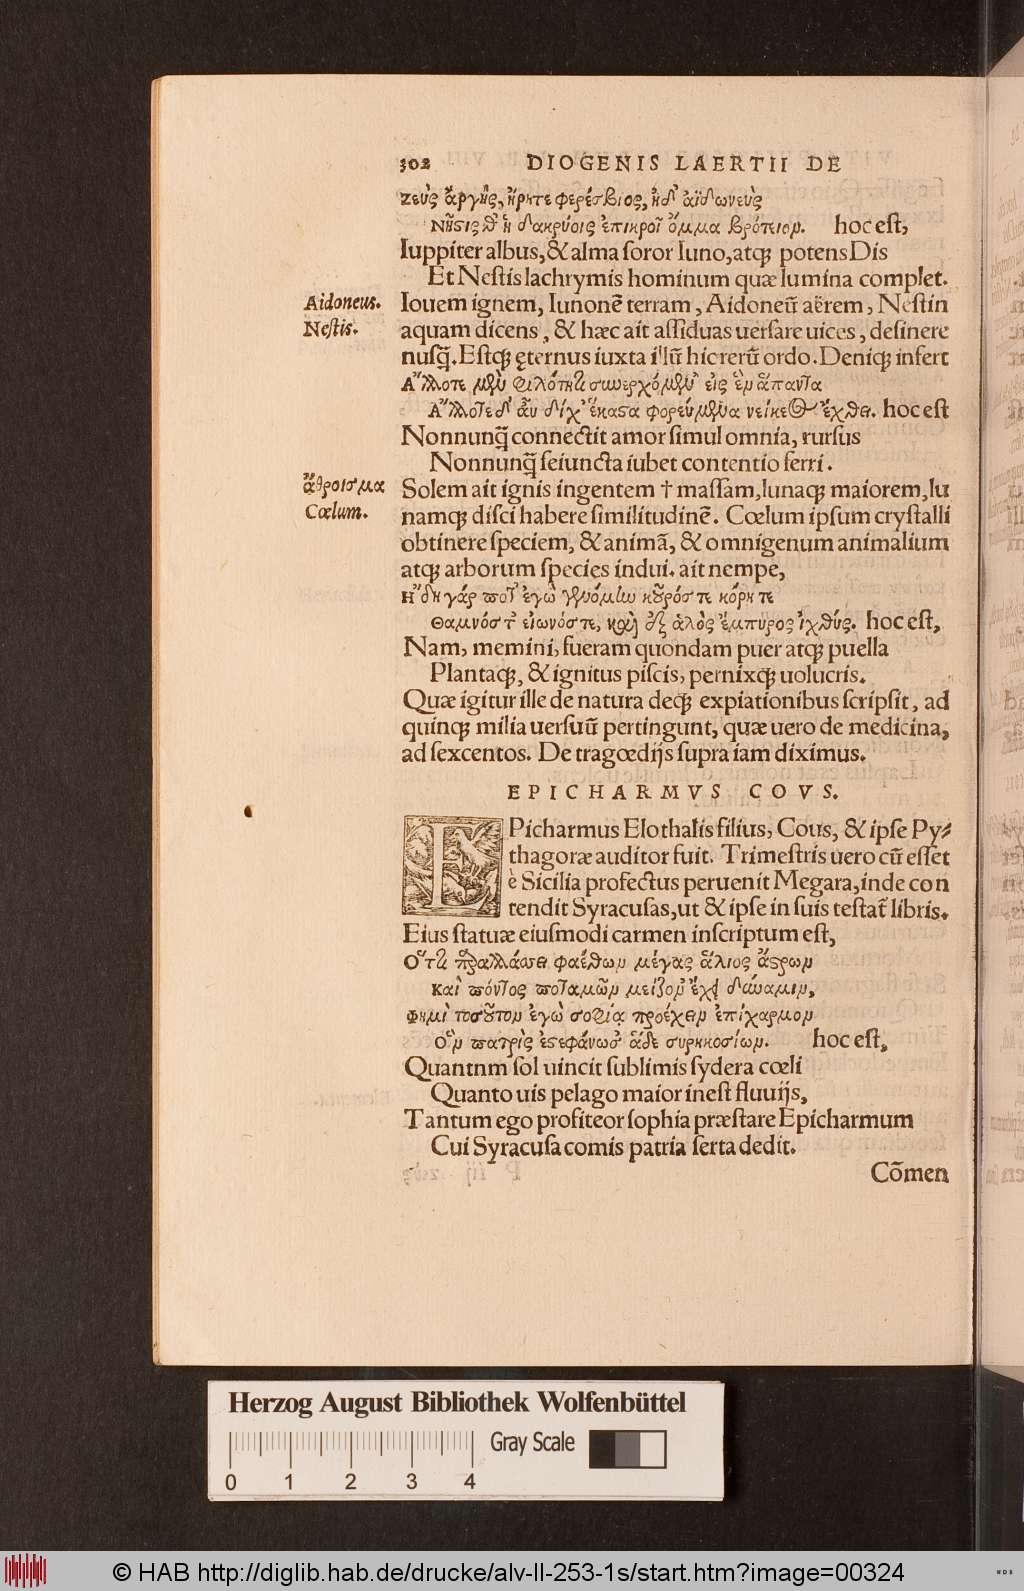 302 DIOGENIS LAERTII DE
Ζεὺς ἄργης, ἥρητε φερέσβιος, ἠδ' ἀϊδωνεὺς
Νῆςις θ' ἣ δακρύοις ἐπικροῖ ὄμμα βρότειον. hoc eſt,
Iuppiter albus, & alma ſoror Iuno, atq; potens Dis
Et Neſtis lachrymis hominum quæ lumina complet.
Aidoneus.
Iouem ignem, Iunonẽ terram, Aidoneũ aërem, Neſtin
Neſtis.
aquam dicens, & hæc ait aſſiduas uerſare uices, deſinere
nuſq̃. Eſtq; ęternus iuxta illũ hic rerũ ordo. Deniq; infert
Ἄλλοτε μὲν φιλότητι συνερχόμεν' εἰς ἓν ἅπαντα
Ἄλλοτε δ' αὖ δίχ' ἕκαςα φορεύμενα νείκεος ἔχθει. hoc eſt
Nonnunq̃ connectit amor ſimul omnia, rurſus
Nonnunq̃ ſeiuncta iubet contentio ferri.
ἄθροισμα
Solem ait ignis ingentem † maſſam, lunaq; maiorem, lu
Cœlum.
namq; diſci habere ſimilitudinẽ. Cœlum ipſum cryſtalli
obtinere ſpeciem, & animã, & omnigenum animalium
atq; arborum ſpecies indui. ait nempe,
Ἤδη γάρ ποτ' ἐγὼ γενόμην κοῦρός τε κόρη τε
Θαμνός τ' οἰωνός τε, καὶ ἐξ ἁλὸς ἔμπυρος ἰχθύς. hoc eſt,
Nam, memini, fueram quondam puer atq; puella
Plantaq;, & ignitus piſcis, pernixq; uolucris.
Quæ igitur ille de natura deq; expiationibus ſcripſit, ad
quinq; milia uerſuũ pertingunt, quæ uero de medicina,
ad ſexcentos. De tragœdijs ſupra iam diximus.
EPICHARMVS COVS.
EPicharmus Elothalis filius, Cous, & ipſe Py⸗
thagoræ auditor fuit. Trimeſtris uero cũ eſſet
è Sicilia profectus peruenit Megara, inde con
tendit Syracuſas, ut & ipſe in ſuis teſtat̃ libris.
Eius ſtatuæ eiuſmodi carmen inſcriptum eſt,
Ὅτι παραλλάσσει φαέθων μέγας ἅλιος ἄςρων
Καὶ πόντος ποταμῶν μείζον' ἔχει δύναμιν,
Φημὶ τοσοῦτον ἐγὼ σοφία προέχειν ἐπίχαρμον
Ὃν πατρὶς ἐςεφάνωσ' ἅδε συρηκοσίων. hoc eſt,
Quantnm ſol uincit ſublimis ſydera cœli
Quanto uis pelago maior ineſt fluuijs,
Tantum ego profiteor ſophia præſtare Epicharmum
Cui Syracuſa comis patria ſerta dedit.
Cõmen
Herzog August Bibliothek Wolfenbüttel
Gray Scale
0 1 2 3 4
© HAB http://diglib.hab.de/drucke/alv-ll-253-1s/start.htm?image=00324